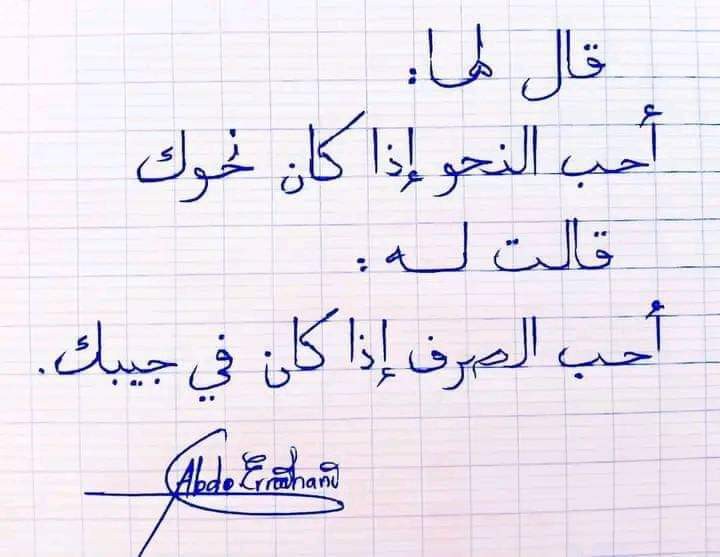 قال لها:
أحب النحو إذا كان نحوك
قالت له:
أحب الصرف إذا كان في جيبك.
Abdo Errachand